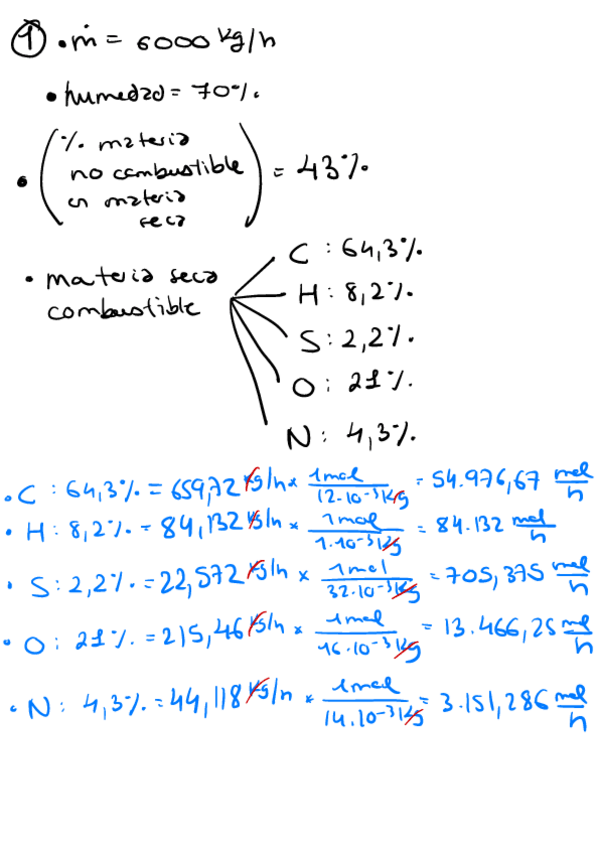 ① • ṁ = 6000 kg/h
• humedad = 70%.
• (% materia no combustible en materia seca) = 43%.
• materia seca combustible
C : 64,3%.
H : 8,2%.
S : 2,2%.
O : 21%.
N : 4,3%.
• C : 64,3% = 659,72 kg/h * 1mol / 12·10⁻³ kg = 54.976,67 mol/h
• H : 8,2% = 84,132 kg/h * 1mol / 1·10⁻³ kg = 84.132 mol/h
• S : 2,2% = 22,572 kg/h * 1mol / 32·10⁻³ kg = 705,375 mol/h
• O : 21% = 215,46 kg/h * 1mol / 16·10⁻³ kg = 13.466,25 mol/h
• N : 4,3% = 44,118 kg/h * 1mol / 14·10⁻³ kg = 3.151,286 mol/h